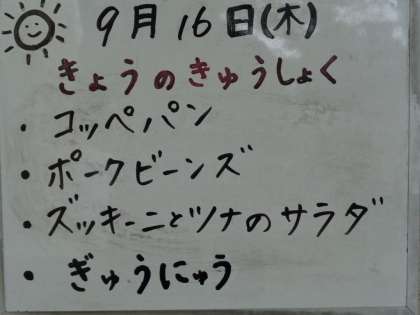 9月16日(木)
きょうのきゅうしょく
・コッペパン
・ポークビーンズ
・ズッキーニとツナのサラダ
・ぎゅうにゅう